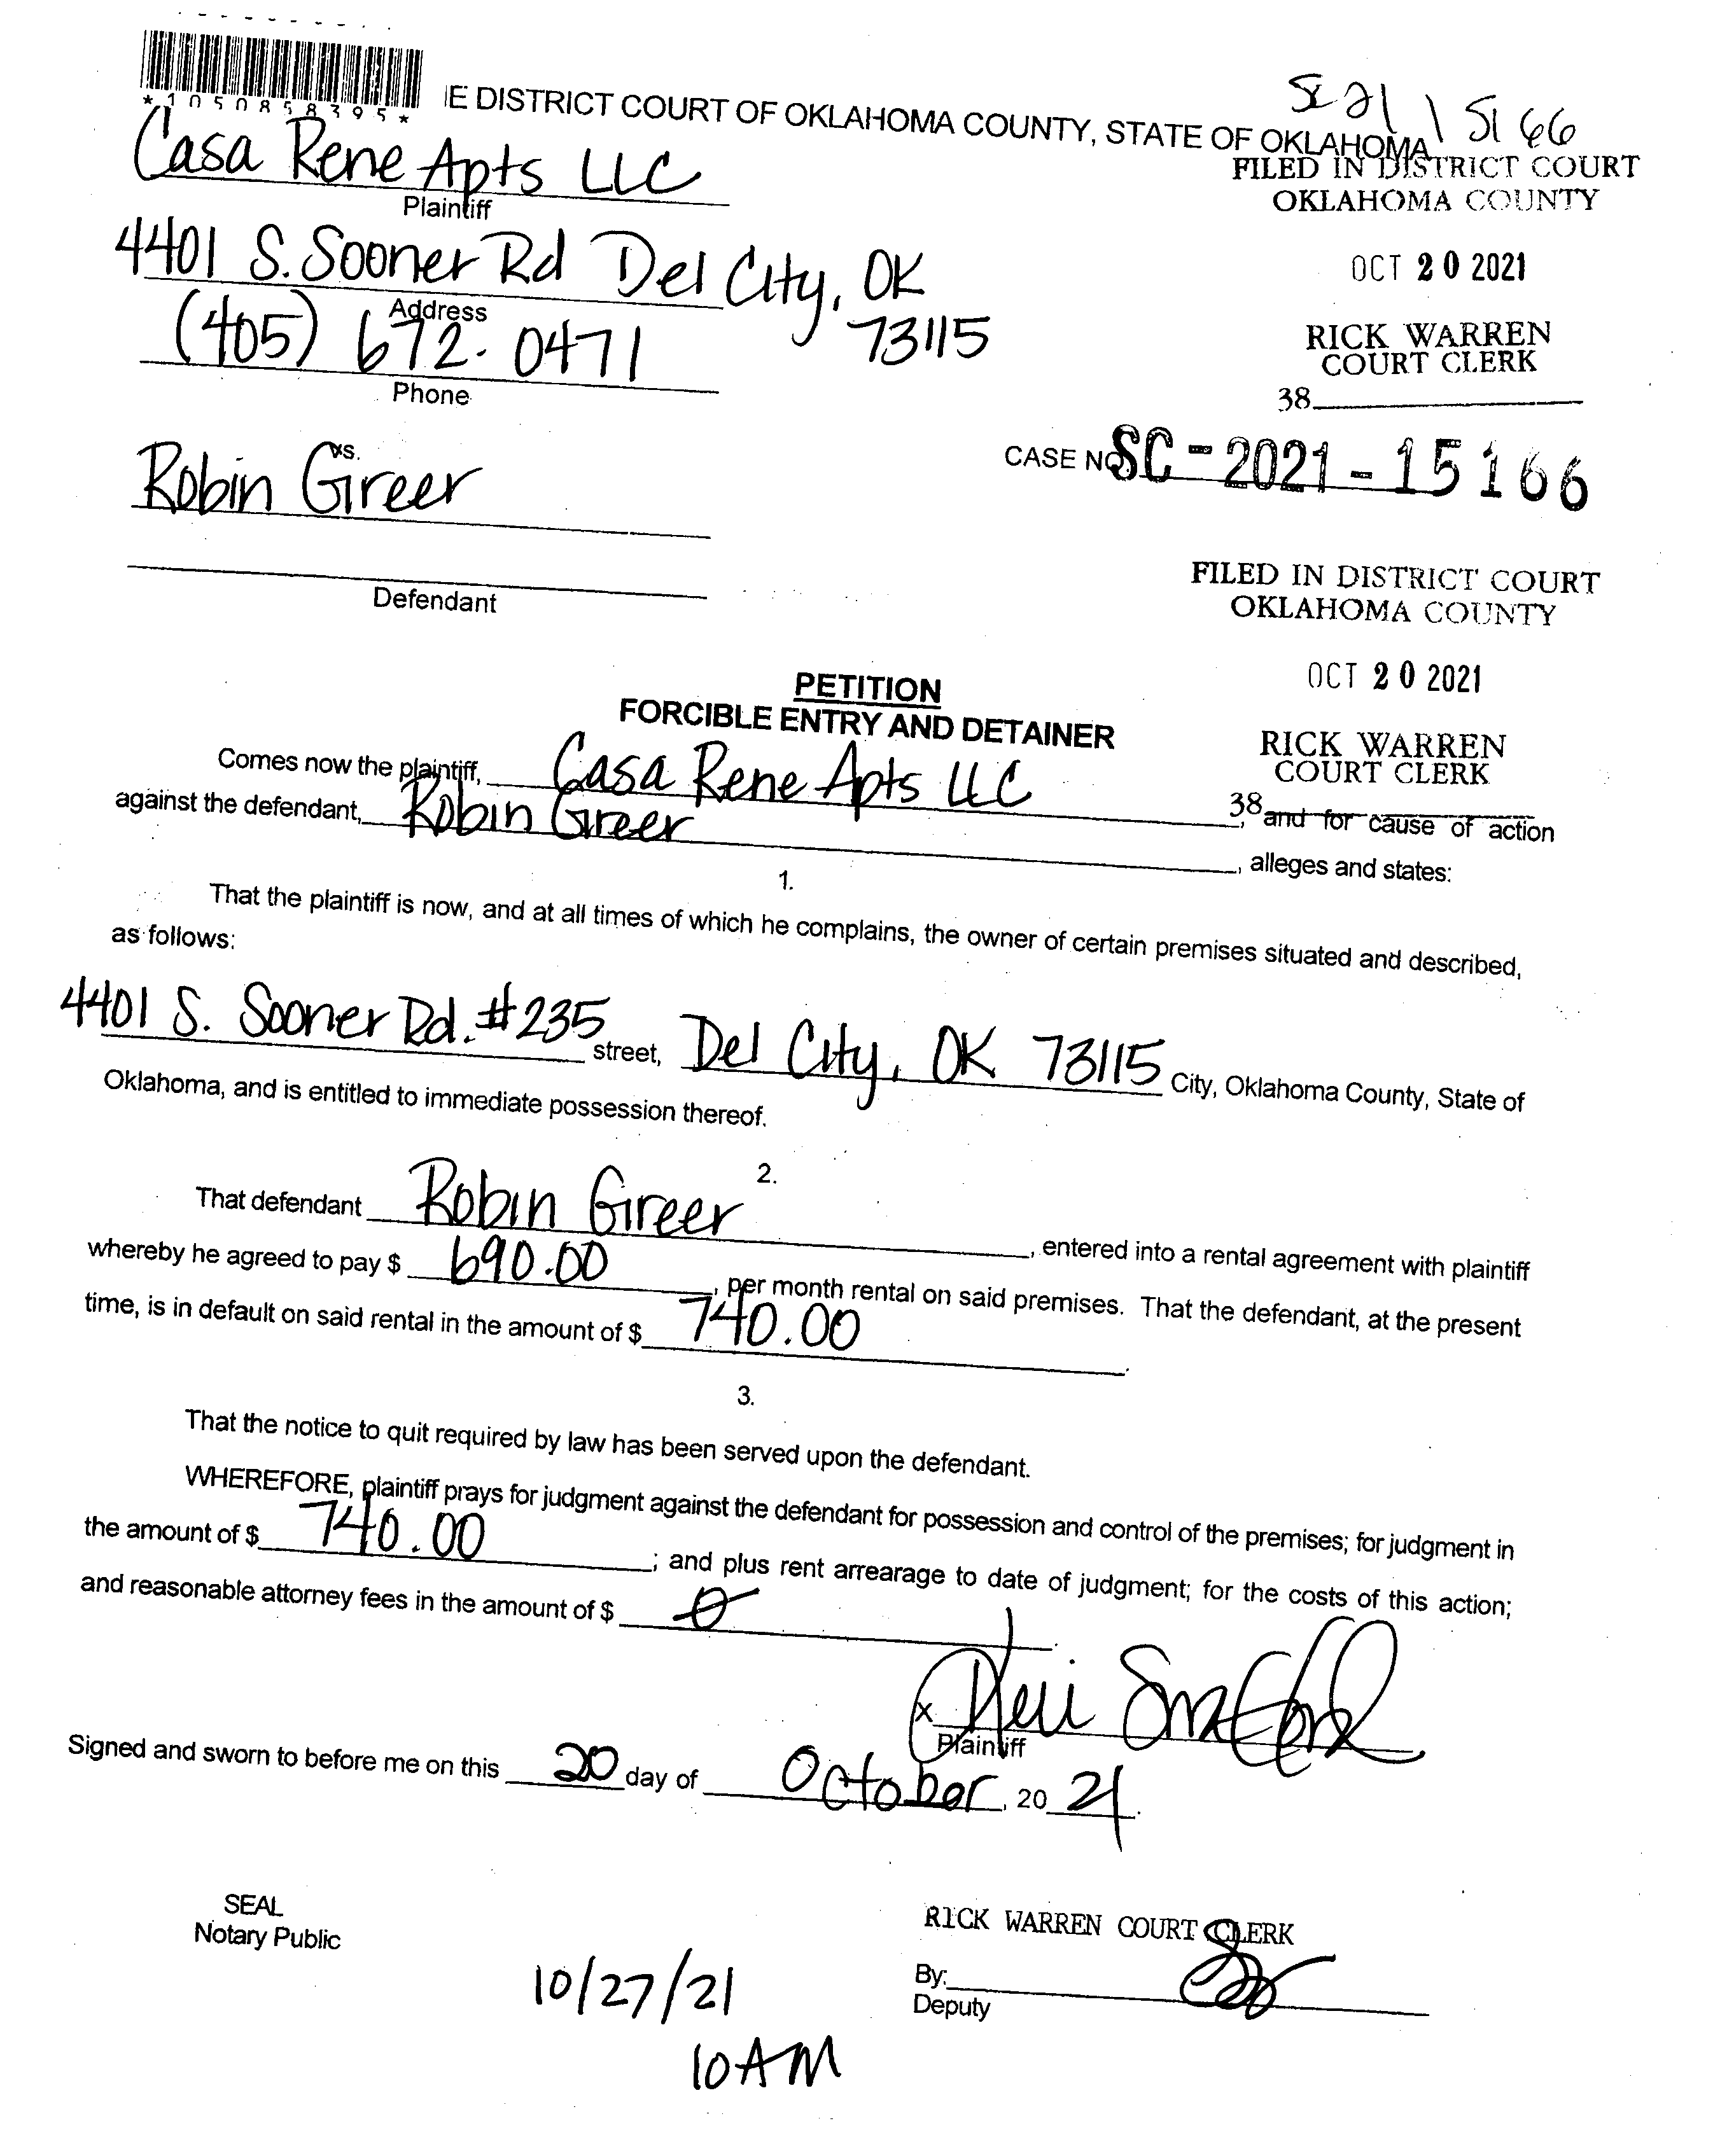 *1050858395*
E DISTRICT COURT OF OKLAHOMA COUNTY, STATE OF OKLAHOMA
Casa Rene Apts LLC
Plaintiff
FILED IN DISTRICT COURT
OKLAHOMA COUNTY
4401 S. Sooner Rd Del City, OK
73115
Address
OCT 20 2021
(405) 672-0471
Phone
RICK WARREN
COURT CLERK
38
vs.
CASE NO. SC-2021-15166
Robin Greer
Defendant
FILED IN DISTRICT COURT
OKLAHOMA COUNTY
OCT 20 2021
PETITION
FORCIBLE ENTRY AND DETAINER
RICK WARREN
COURT CLERK
38
Comes now the plaintiff, Casa Rene Apts LLC, and for cause of action
against the defendant, Robin Greer, alleges and states:
1.
That the plaintiff is now, and at all times of which he complains, the owner of certain premises situated and described,
as follows:
4401 S. Sooner Rd. #235 street, Del City, OK 73115 City, Oklahoma County, State of
Oklahoma, and is entitled to immediate possession thereof.
2.
That defendant Robin Greer, entered into a rental agreement with plaintiff
whereby he agreed to pay $ 690.00, per month rental on said premises. That the defendant, at the present
time, is in default on said rental in the amount of $ 740.00.
3.
That the notice to quit required by law has been served upon the defendant.
WHEREFORE, plaintiff prays for judgment against the defendant for possession and control of the premises; for judgment in
the amount of $ 740.00; and plus rent arrearage to date of judgment; for the costs of this action;
and reasonable attorney fees in the amount of $ 0.
x
Plaintiff
Signed and sworn to before me on this 20 day of October, 20 21.
SEAL
Notary Public
RICK WARREN COURT CLERK
By:
Deputy
10/27/21
10AM